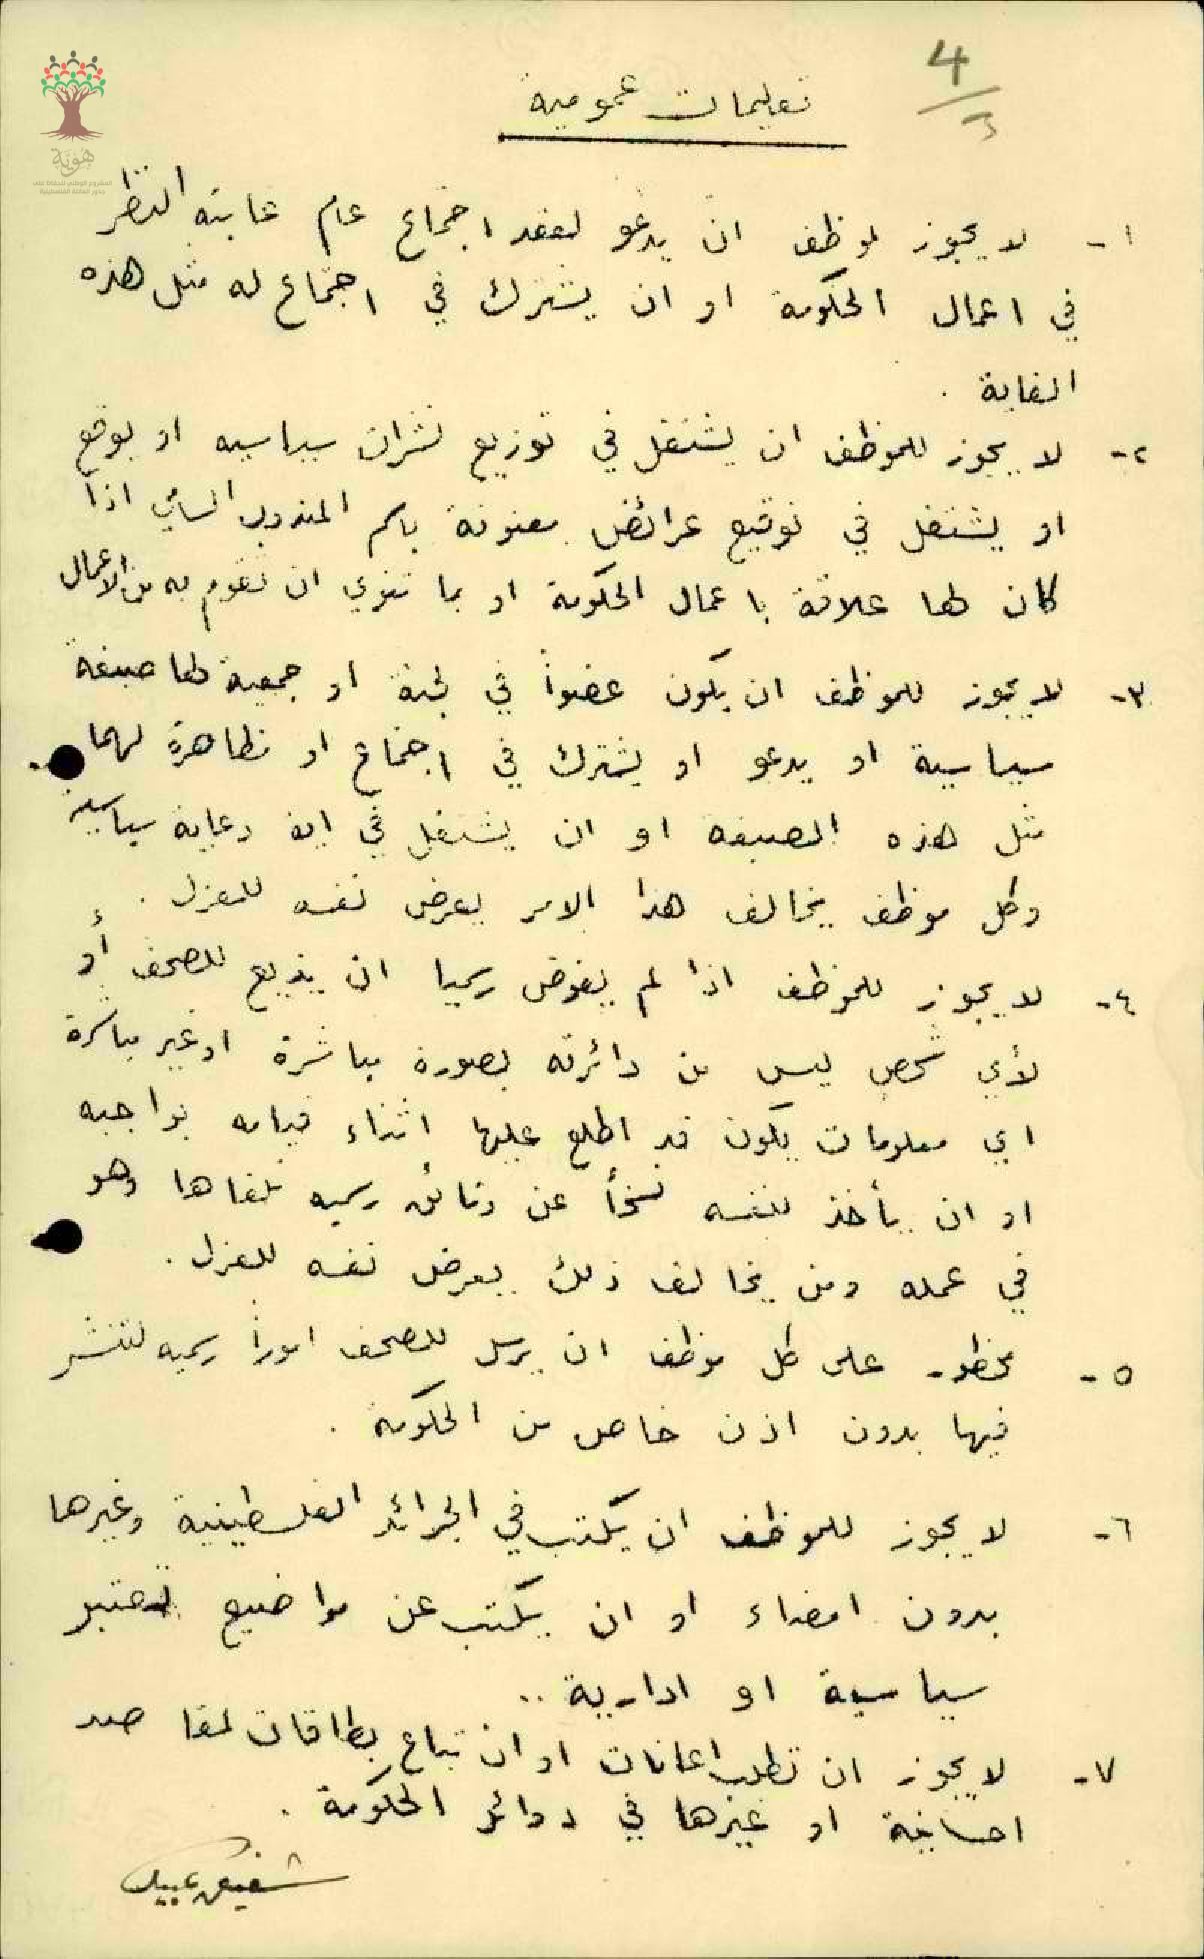 4
3
هوية
المشروع الوطني للحفاظ على
جذور العائلة الفلسطينية
تعليمات عمومية
١- لا يجوز لموظف ان يدعو لعقد اجتماع عام غايته النظر
في اعمال الحكومة او ان يشترك في اجتماع له مثل هذه
الغاية .
٢- لا يجوز للموظف ان يشتغل في توزيع نشرات سياسيه او يوقع
او يشتغل في توقيع عرائض معنونة باسم المندوب السامي اذا
كان لها علاقة باعمال الحكومة او بما تنوي ان تقوم به من الاعمال
٣- لا يجوز للموظف ان يكون عضواً في لجنة او جمعية لها صبغة
سياسية او يدعو او يشترك في اجتماع او تظاهرة لهما
مثل هذه الصبغة او ان يشتغل في اية دعاية سياسيه
وكل موظف يخالف هذا الامر يعرض نفسه للعزل .
٤- لا يجوز للموظف اذا لم يفوض رسميا ان يذيع للصحف أو
لأي شخص ليس من دائرته بصورة مباشرة او غير مباشرة
اي معلومات يكون قد اطلع عليها اثناء قيامه بواجبه
او ان يأخذ لنفسه نسخاً عن وثائق رسميه تلقاها وهو
في عمله ومن يخالف ذلك يعرض نفسه للعزل .
٥- محظور على كل موظف ان يرسل للصحف اموراً رسميه لتنشر
فيها بدون اذن خاص من الحكومة .
٦- لا يجوز للموظف ان يكتب في الجرائد الفلسطينية وغيرها
بدون امضاء او ان يكتب عن مواضيع تعتبر
سياسية او ادارية ..
٧- لا يجوز ان تطلب اعانات او ان تباع بطاقات لمقاصد
احسانية او غيرها في دوائر الحكومة .
شفيق عبيد